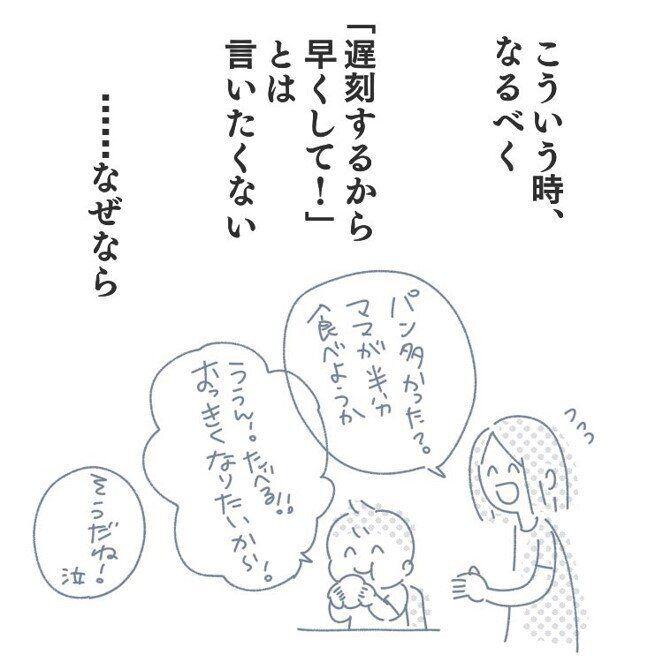 こういう時、
なるべく
「遅刻するから
早くして！」
とは
言いたくない
……なぜなら
パン多かった？
ママが半分
食べようか
ううん！たべる！！
おっきく
なりたいから〜！
そうだね！
泣